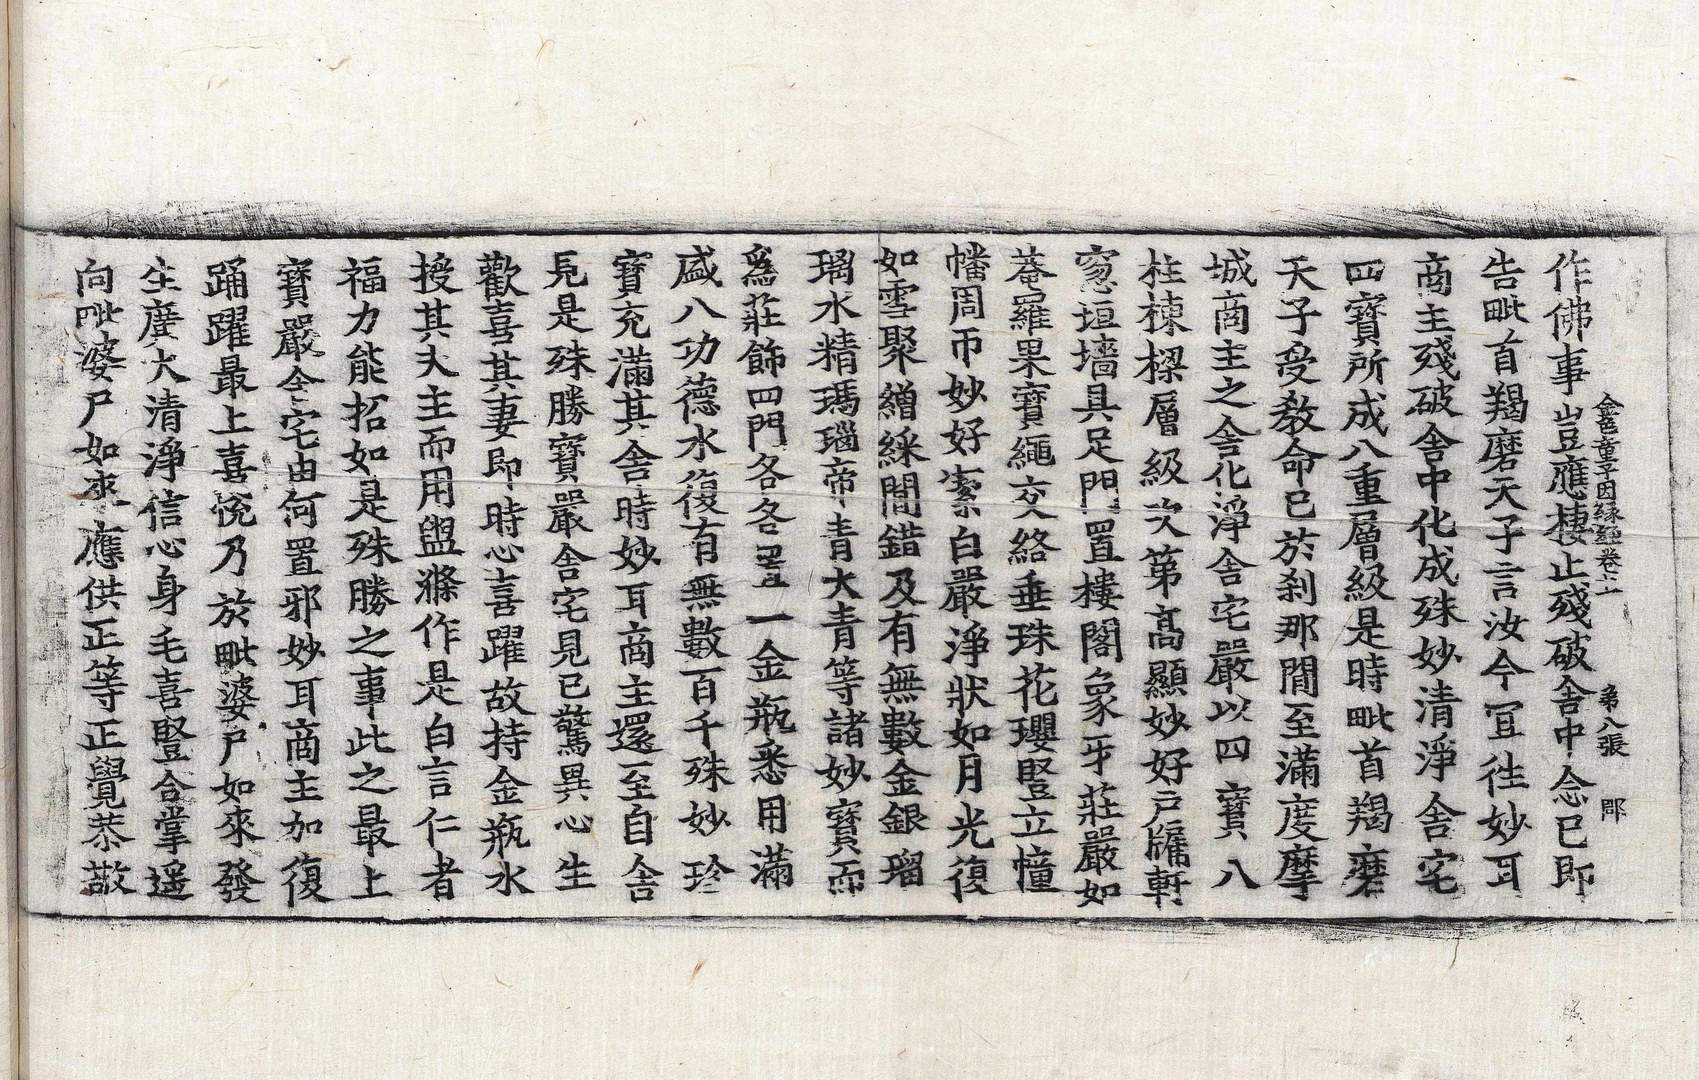 金色童子因緣經卷十一 第八張 郡
作佛事豈應棲止殘破舍中念已即
告毗首羯磨天子言汝今宜往妙耳
商主殘破舍中化成殊妙清淨舍宅
四寶所成八重層級是時毗首羯磨
天子受教命已於刹那間至滿度摩
城商主之舍化淨舍宅嚴以四寶八
柱棟樑層級次第高顯妙好戶牖軒
窓垣墻具足門置樓閣象牙莊嚴如
菴羅果寶繩交絡垂珠花瓔竪立幢
幡周帀妙好潔白嚴淨狀如月光復
如雪聚繒綵間錯及有無數金銀瑠
璃水精瑪瑙帝青大青等諸妙寶而
爲莊飾四門各各置一金瓶悉用滿
盛八功德水復有無數百千殊妙珍
寶充滿其舍時妙耳商主還至自舍
見是殊勝寶嚴舍宅見已驚異心生
歡喜其妻即時心喜躍故持金瓶水
授其夫主而用盥滌作是白言仁者
福力能招如是殊勝之事此之最上
寶嚴舍宅由何置邪妙耳商主加復
踊躍最上喜悅乃於毗婆尸如來發
生廣大清淨信心身毛喜竪合掌遥
向毗婆尸如來應供正等正覺恭敬